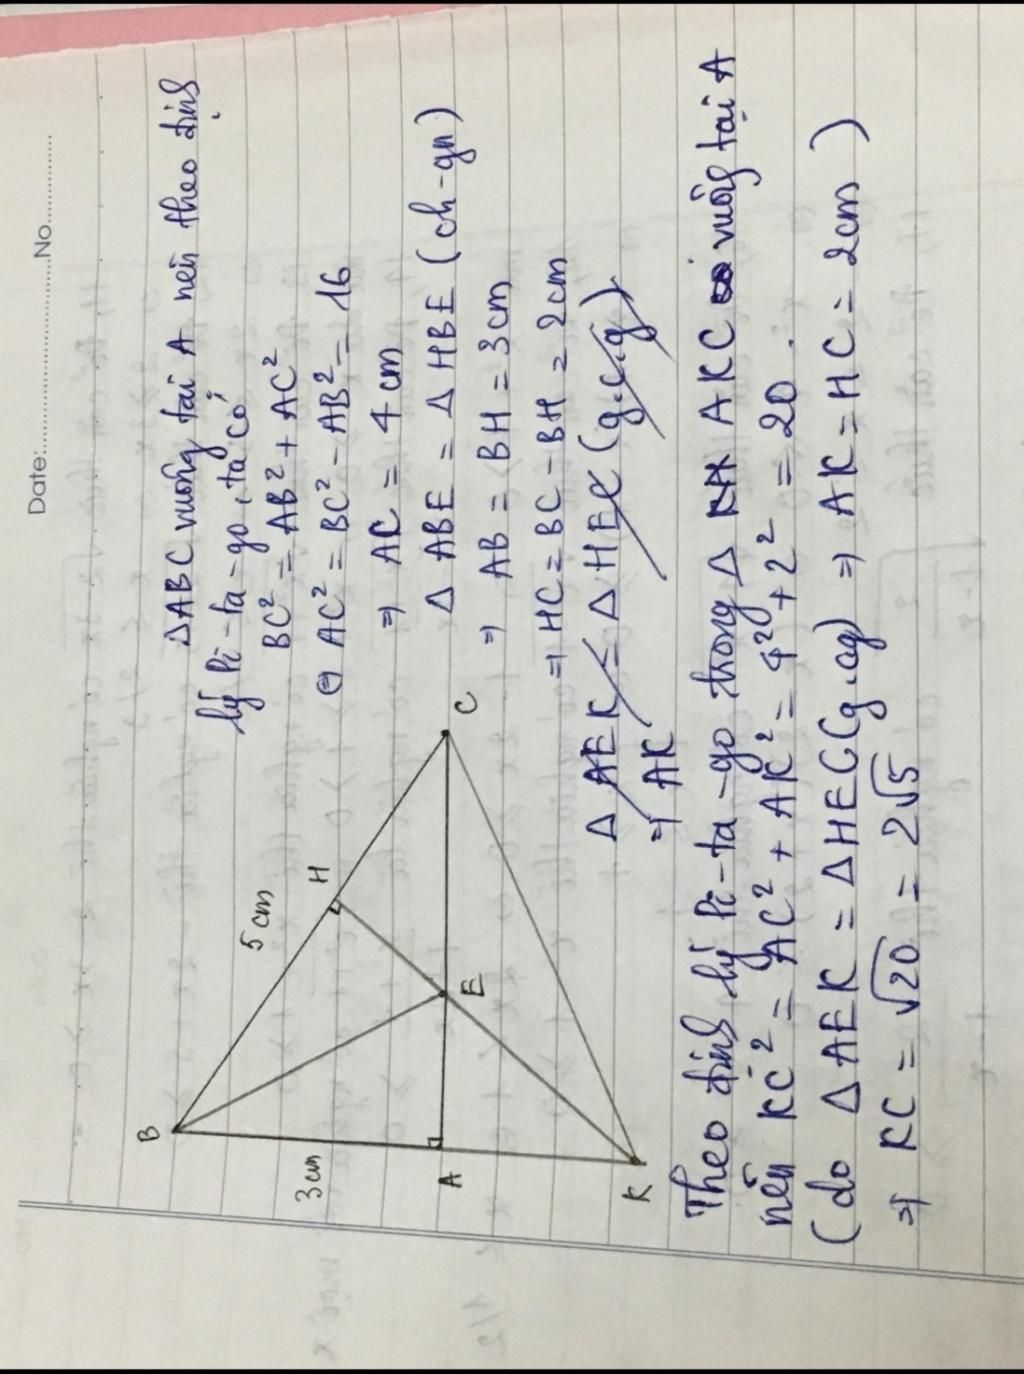 Date:....................No...............
ΔABC vuông tại A nên theo định
lý Pi-ta-go, ta có
BC² = AB² + AC²
⊖ AC² = BC² - AB² = 16
⇒ AC = 4 cm
Δ ABE = Δ HBE (ch-gn)
⇒ AB = BH = 3cm
⇒ HC = BC - BH = 2cm
Δ AEK = Δ HEC (g.c.g)
⇒ AK
B
5 cm
H
C
3cm
A
E
K
Theo định lý Pi-ta-go trong Δ AKC vuông tại A
nên KC² = AC² + AK² = 4² + 2² = 20.
(do Δ AEK = Δ HEC (g.cg) ⇒ AK = HC = 2cm )
⇒ KC = √20 = 2√5